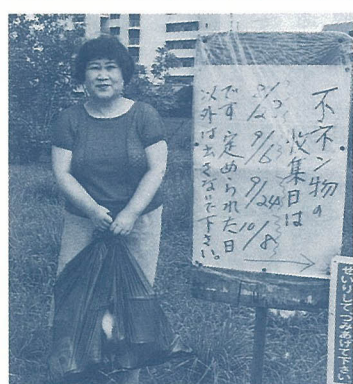 不ネン物の
収集日は
9/6
9/24
10/8
です 定められた日
以外は出さないで下さい。
せいりしてつみあげて下さい